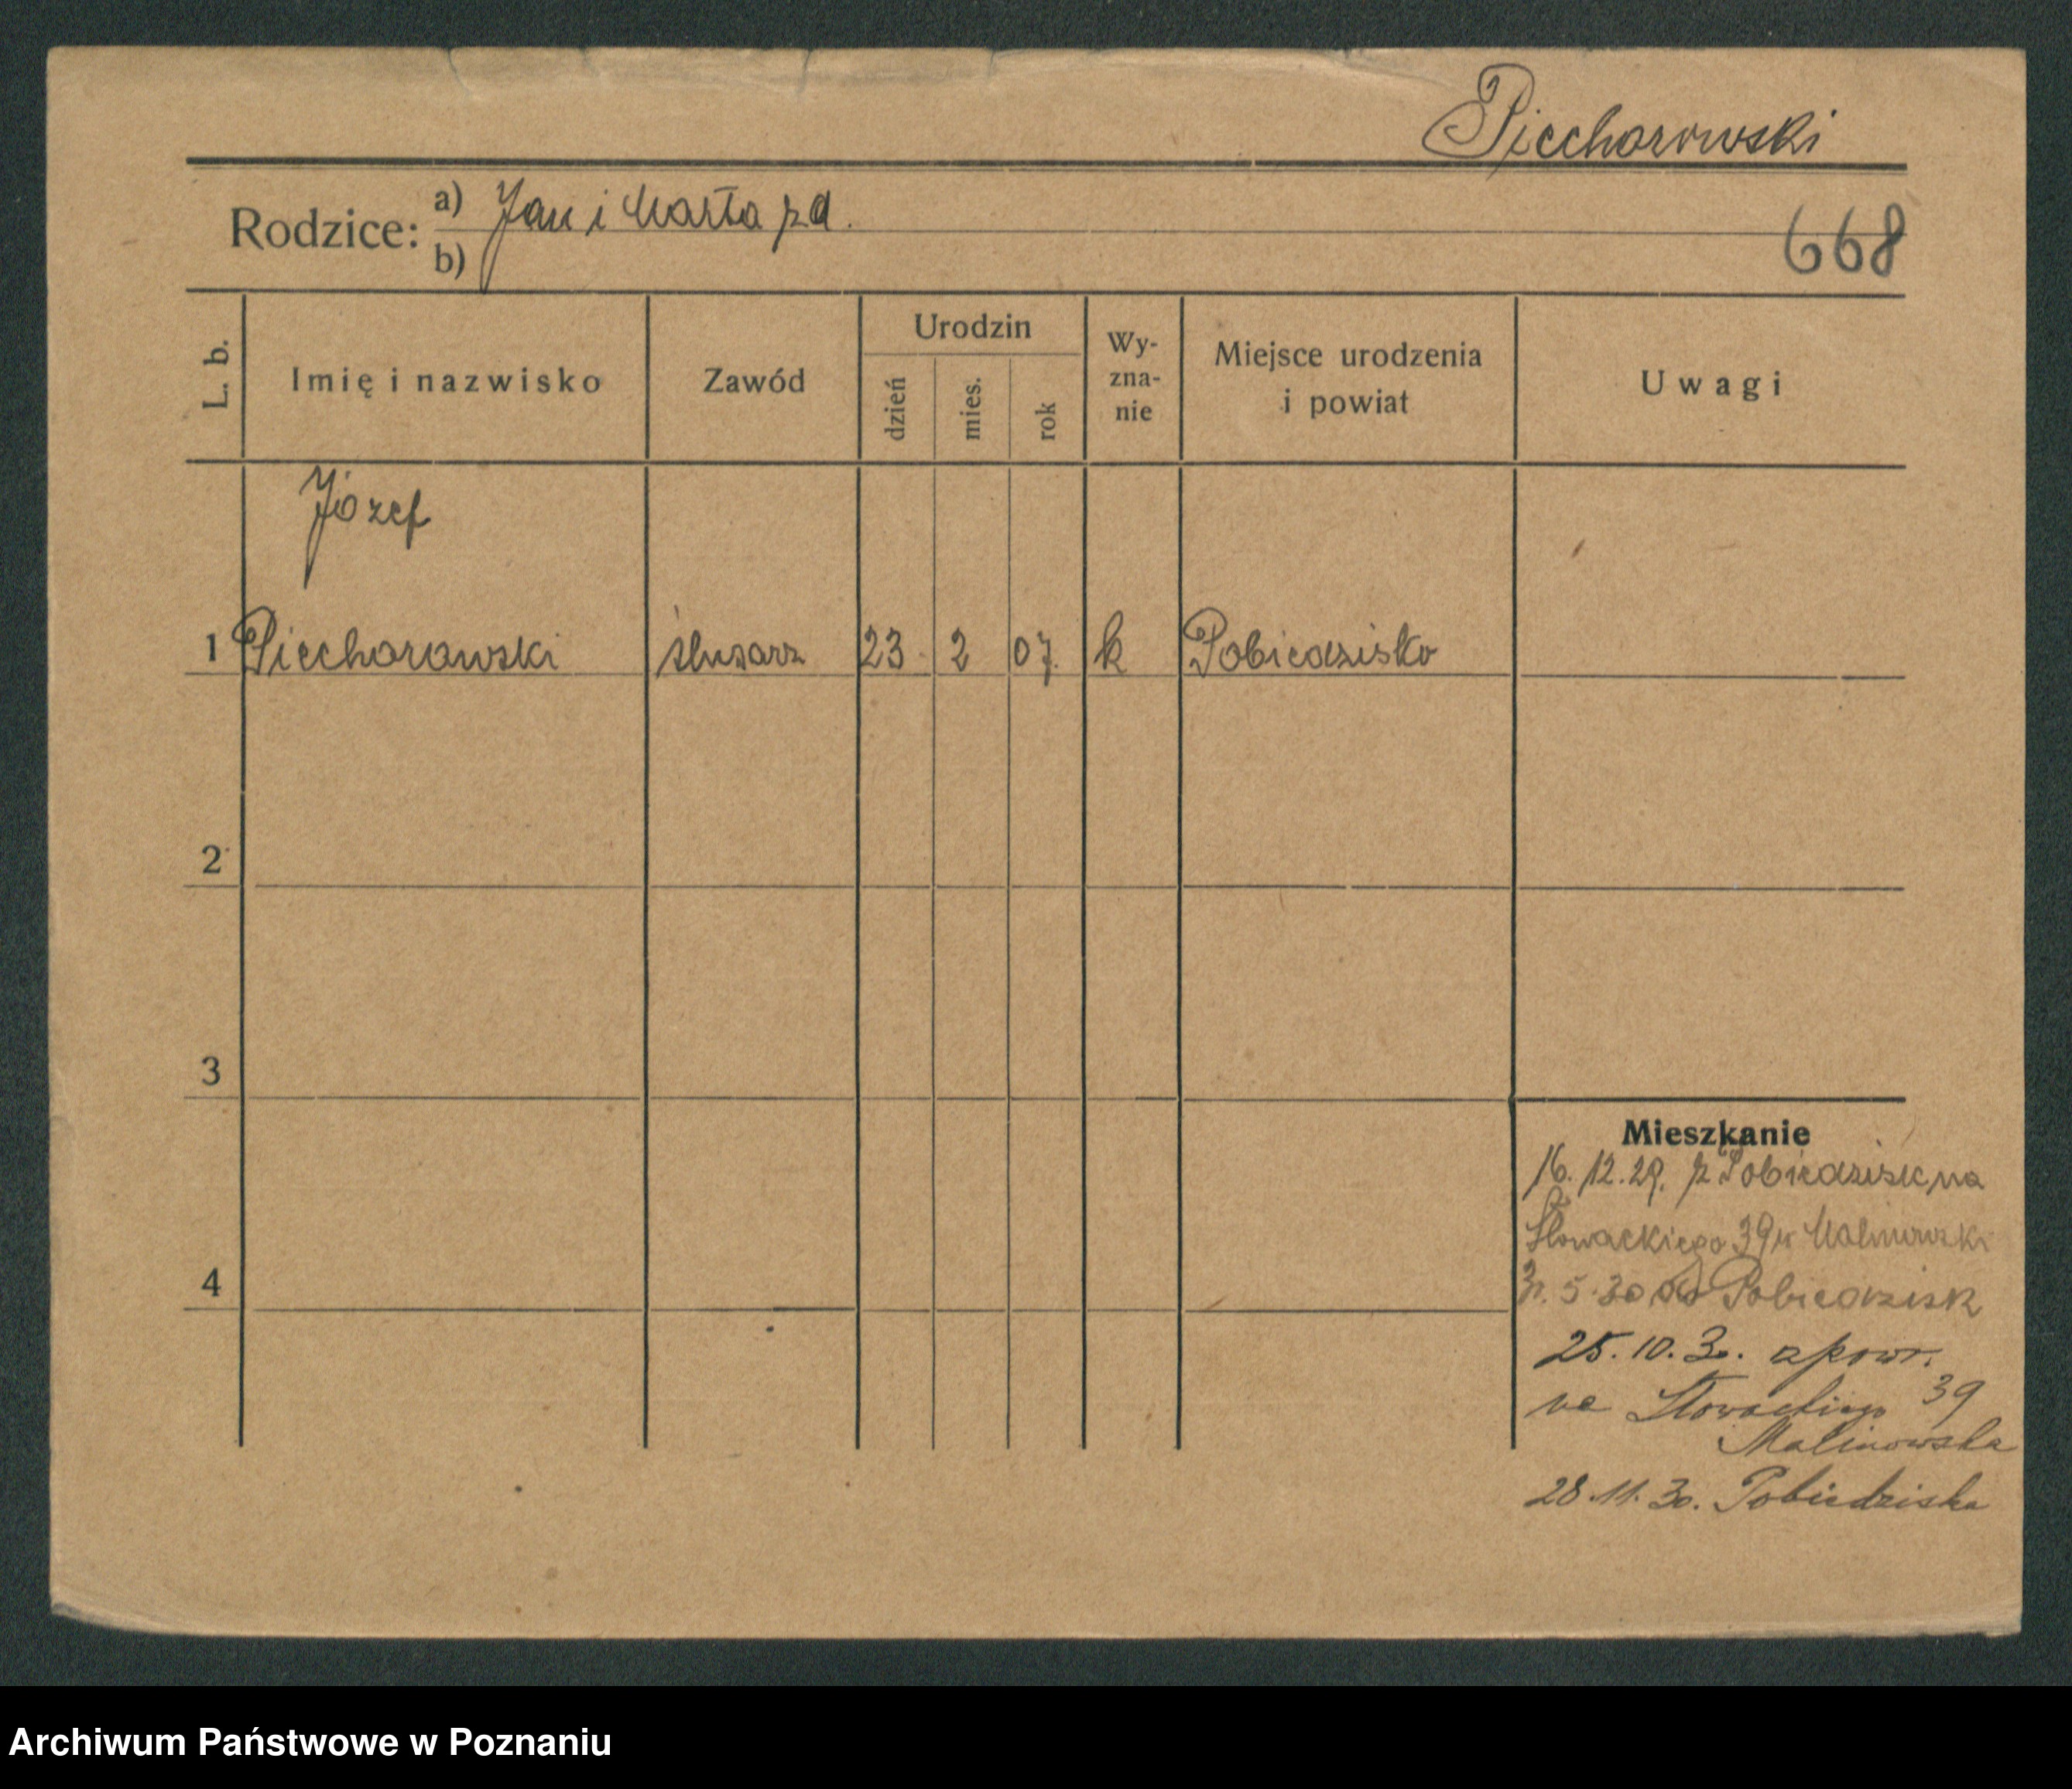 Piechorowski
Rodzice: a) Jan i Marta zd.
b)
668
L. b.
Imię i nazwisko
Zawód
Urodzin
dzień
mies.
rok
Wy-
zna-
nie
Miejsce urodzenia
i powiat
Uwagi
Józef
1 Piechorowski ślusarz 23 2 07. k Pobiedzisko
2
3
4
Mieszkanie
16. 12. 29. z Pobiedzisk na
Słowackiego 39
5. 30 do Pobiedzisk
25. 10. 30. zpowr.
na Słowackiego 39
Malinowska
28. 11. 30. Pobiedziska
Archiwum Państwowe w Poznaniu